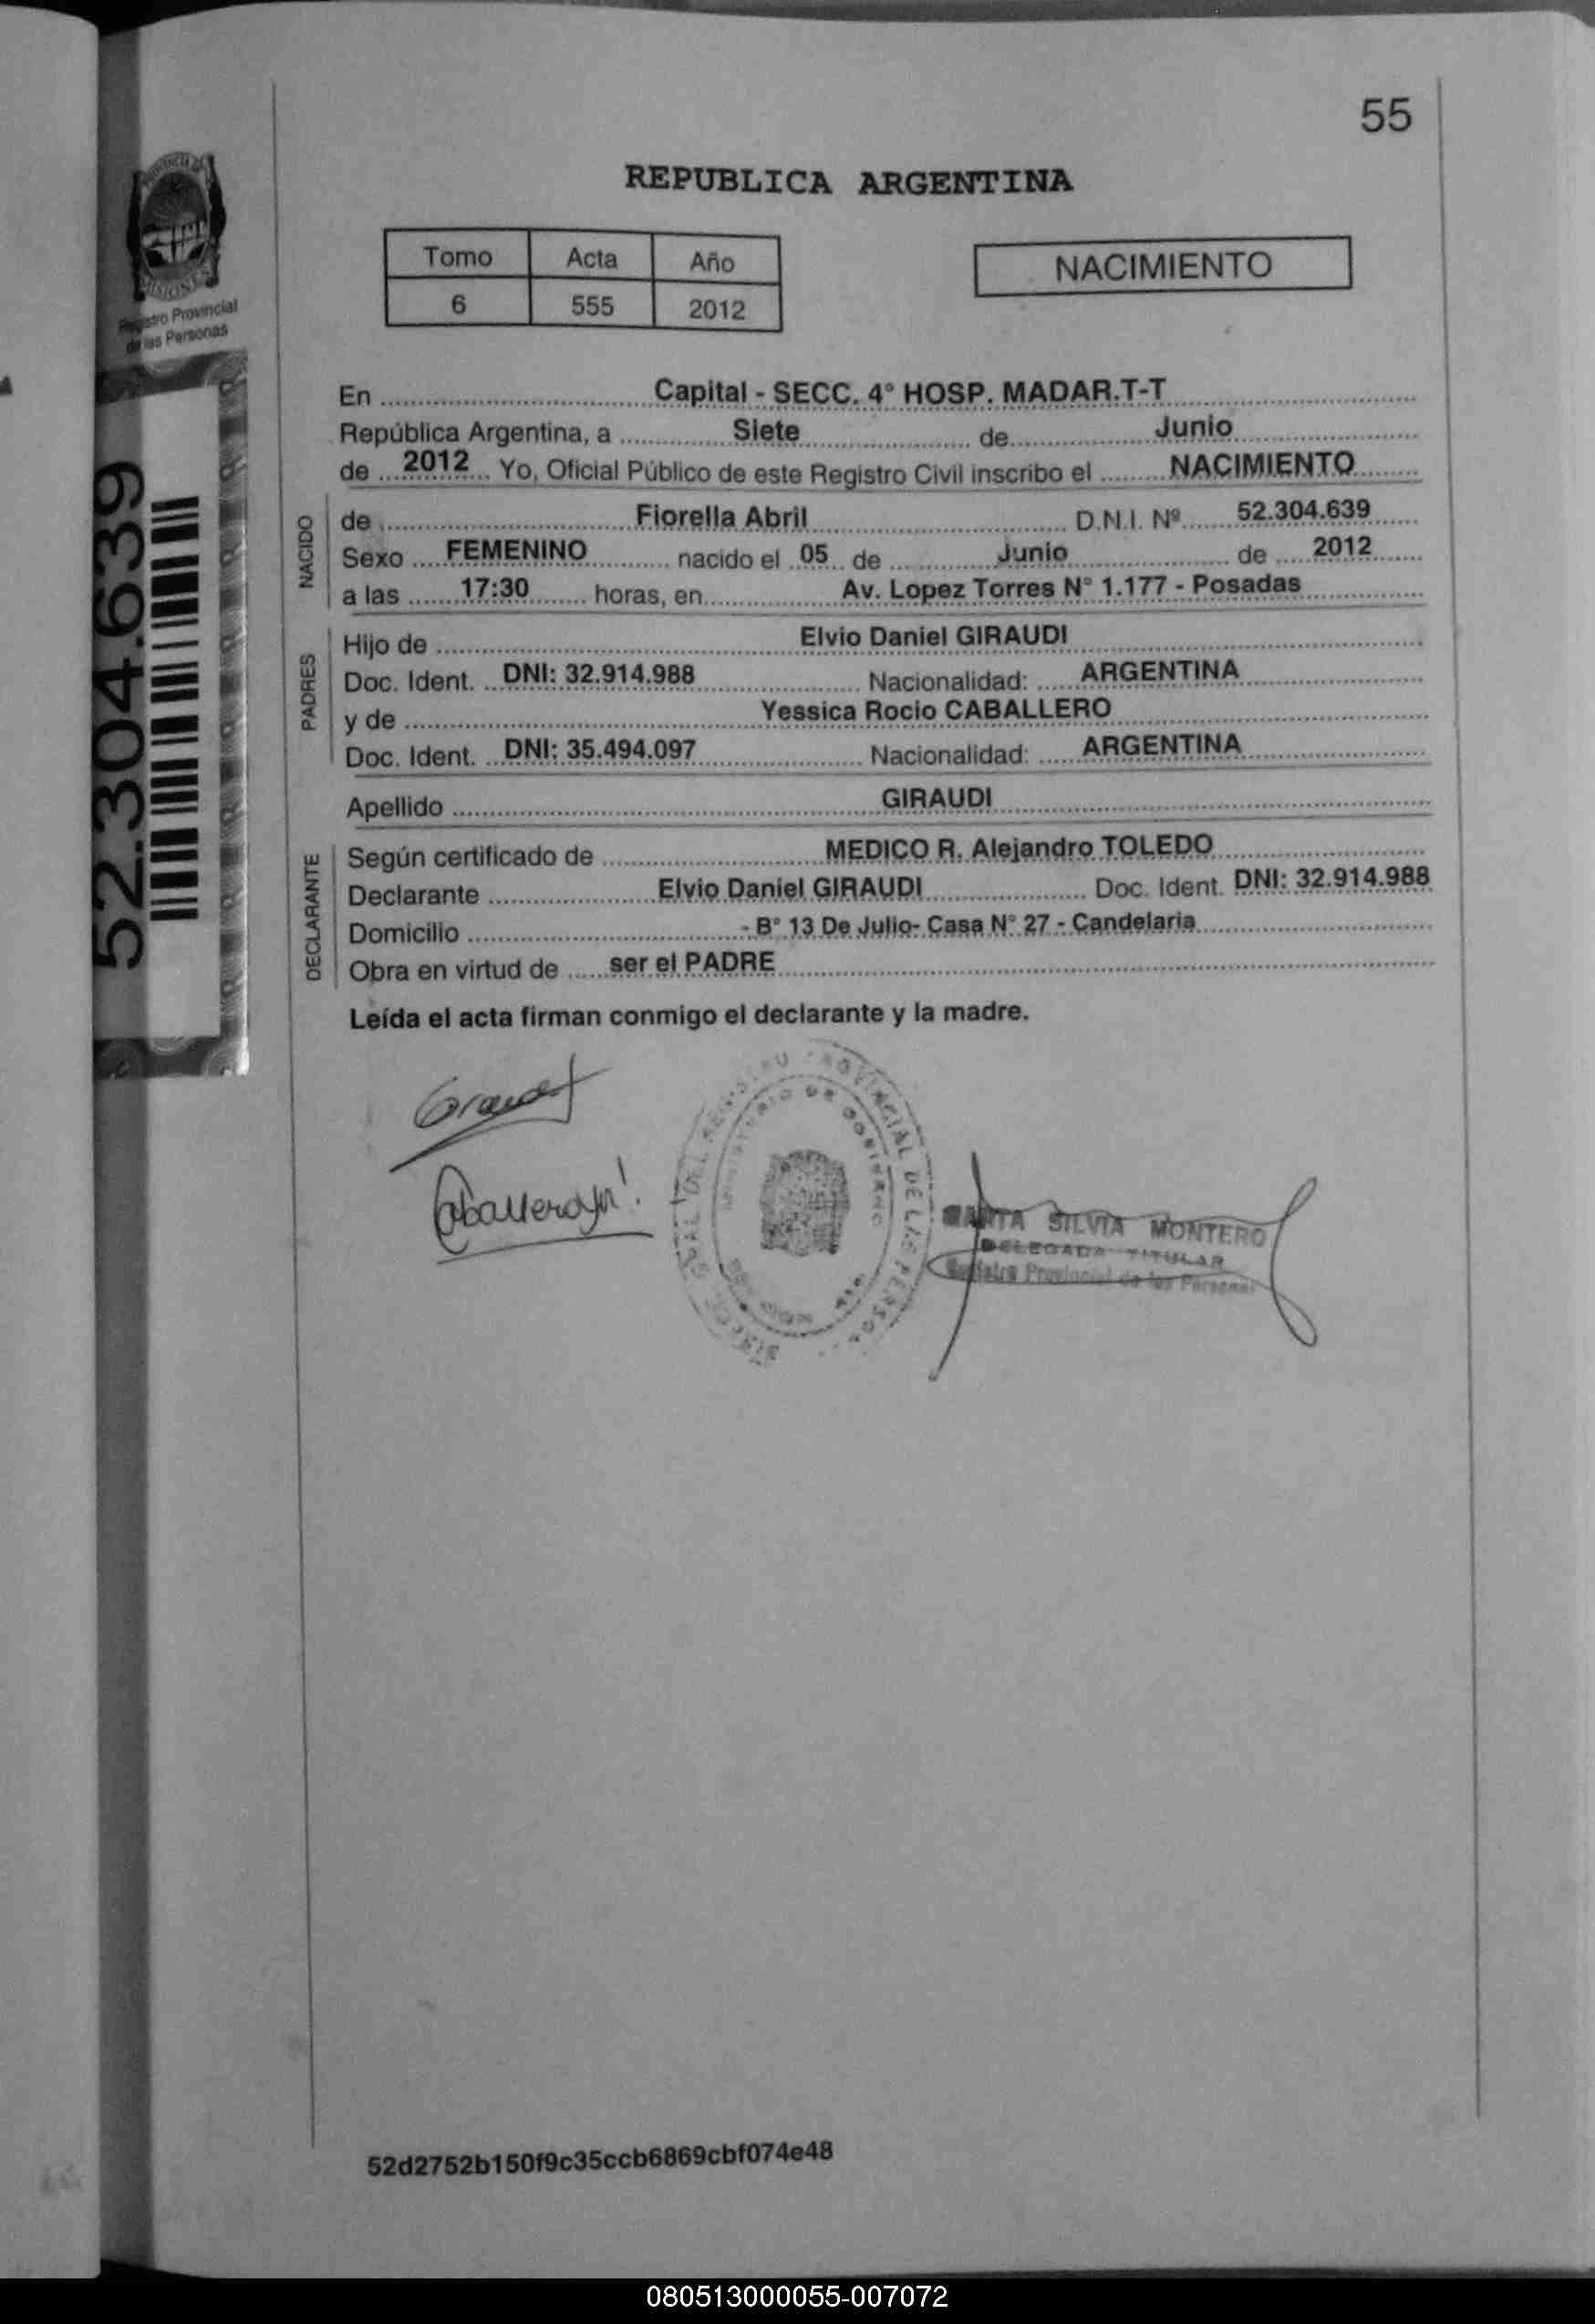 55
REPUBLICA ARGENTINA
Tomo Acta Año
6 555 2012
NACIMIENTO
PROVINCIA DE
MISIONES
Registro Provincial
de las Personas
52.304.639
En Capital - SECC. 4° HOSP. MADAR.T-T
República Argentina, a Siete de Junio
de 2012 Yo, Oficial Público de este Registro Civil inscribo el NACIMIENTO
NACIDO
de Fiorella Abril D.N.I. Nº 52.304.639
Sexo FEMENINO nacido el 05 de Junio de 2012
a las 17:30 horas, en Av. Lopez Torres N° 1.177 - Posadas
PADRES
Hijo de Elvio Daniel GIRAUDI
Doc. Ident. DNI: 32.914.988 Nacionalidad: ARGENTINA
y de Yessica Rocio CABALLERO
Doc. Ident. DNI: 35.494.097 Nacionalidad: ARGENTINA
Apellido GIRAUDI
DECLARANTE
Según certificado de MEDICO R. Alejandro TOLEDO
Declarante Elvio Daniel GIRAUDI Doc. Ident. DNI: 32.914.988
Domicilio - B° 13 De Julio- Casa N° 27 - Candelaria
Obra en virtud de ser el PADRE
Leída el acta firman conmigo el declarante y la madre.
PROVINCIAL DE LAS
MINISTERIO DE GOBIERNO
SILVIA MONTERO
DELEGADA TITULAR
Registro Provincial de las Personas
52d2752b150f9c35ccb6869cbf074e48
080513000055-007072